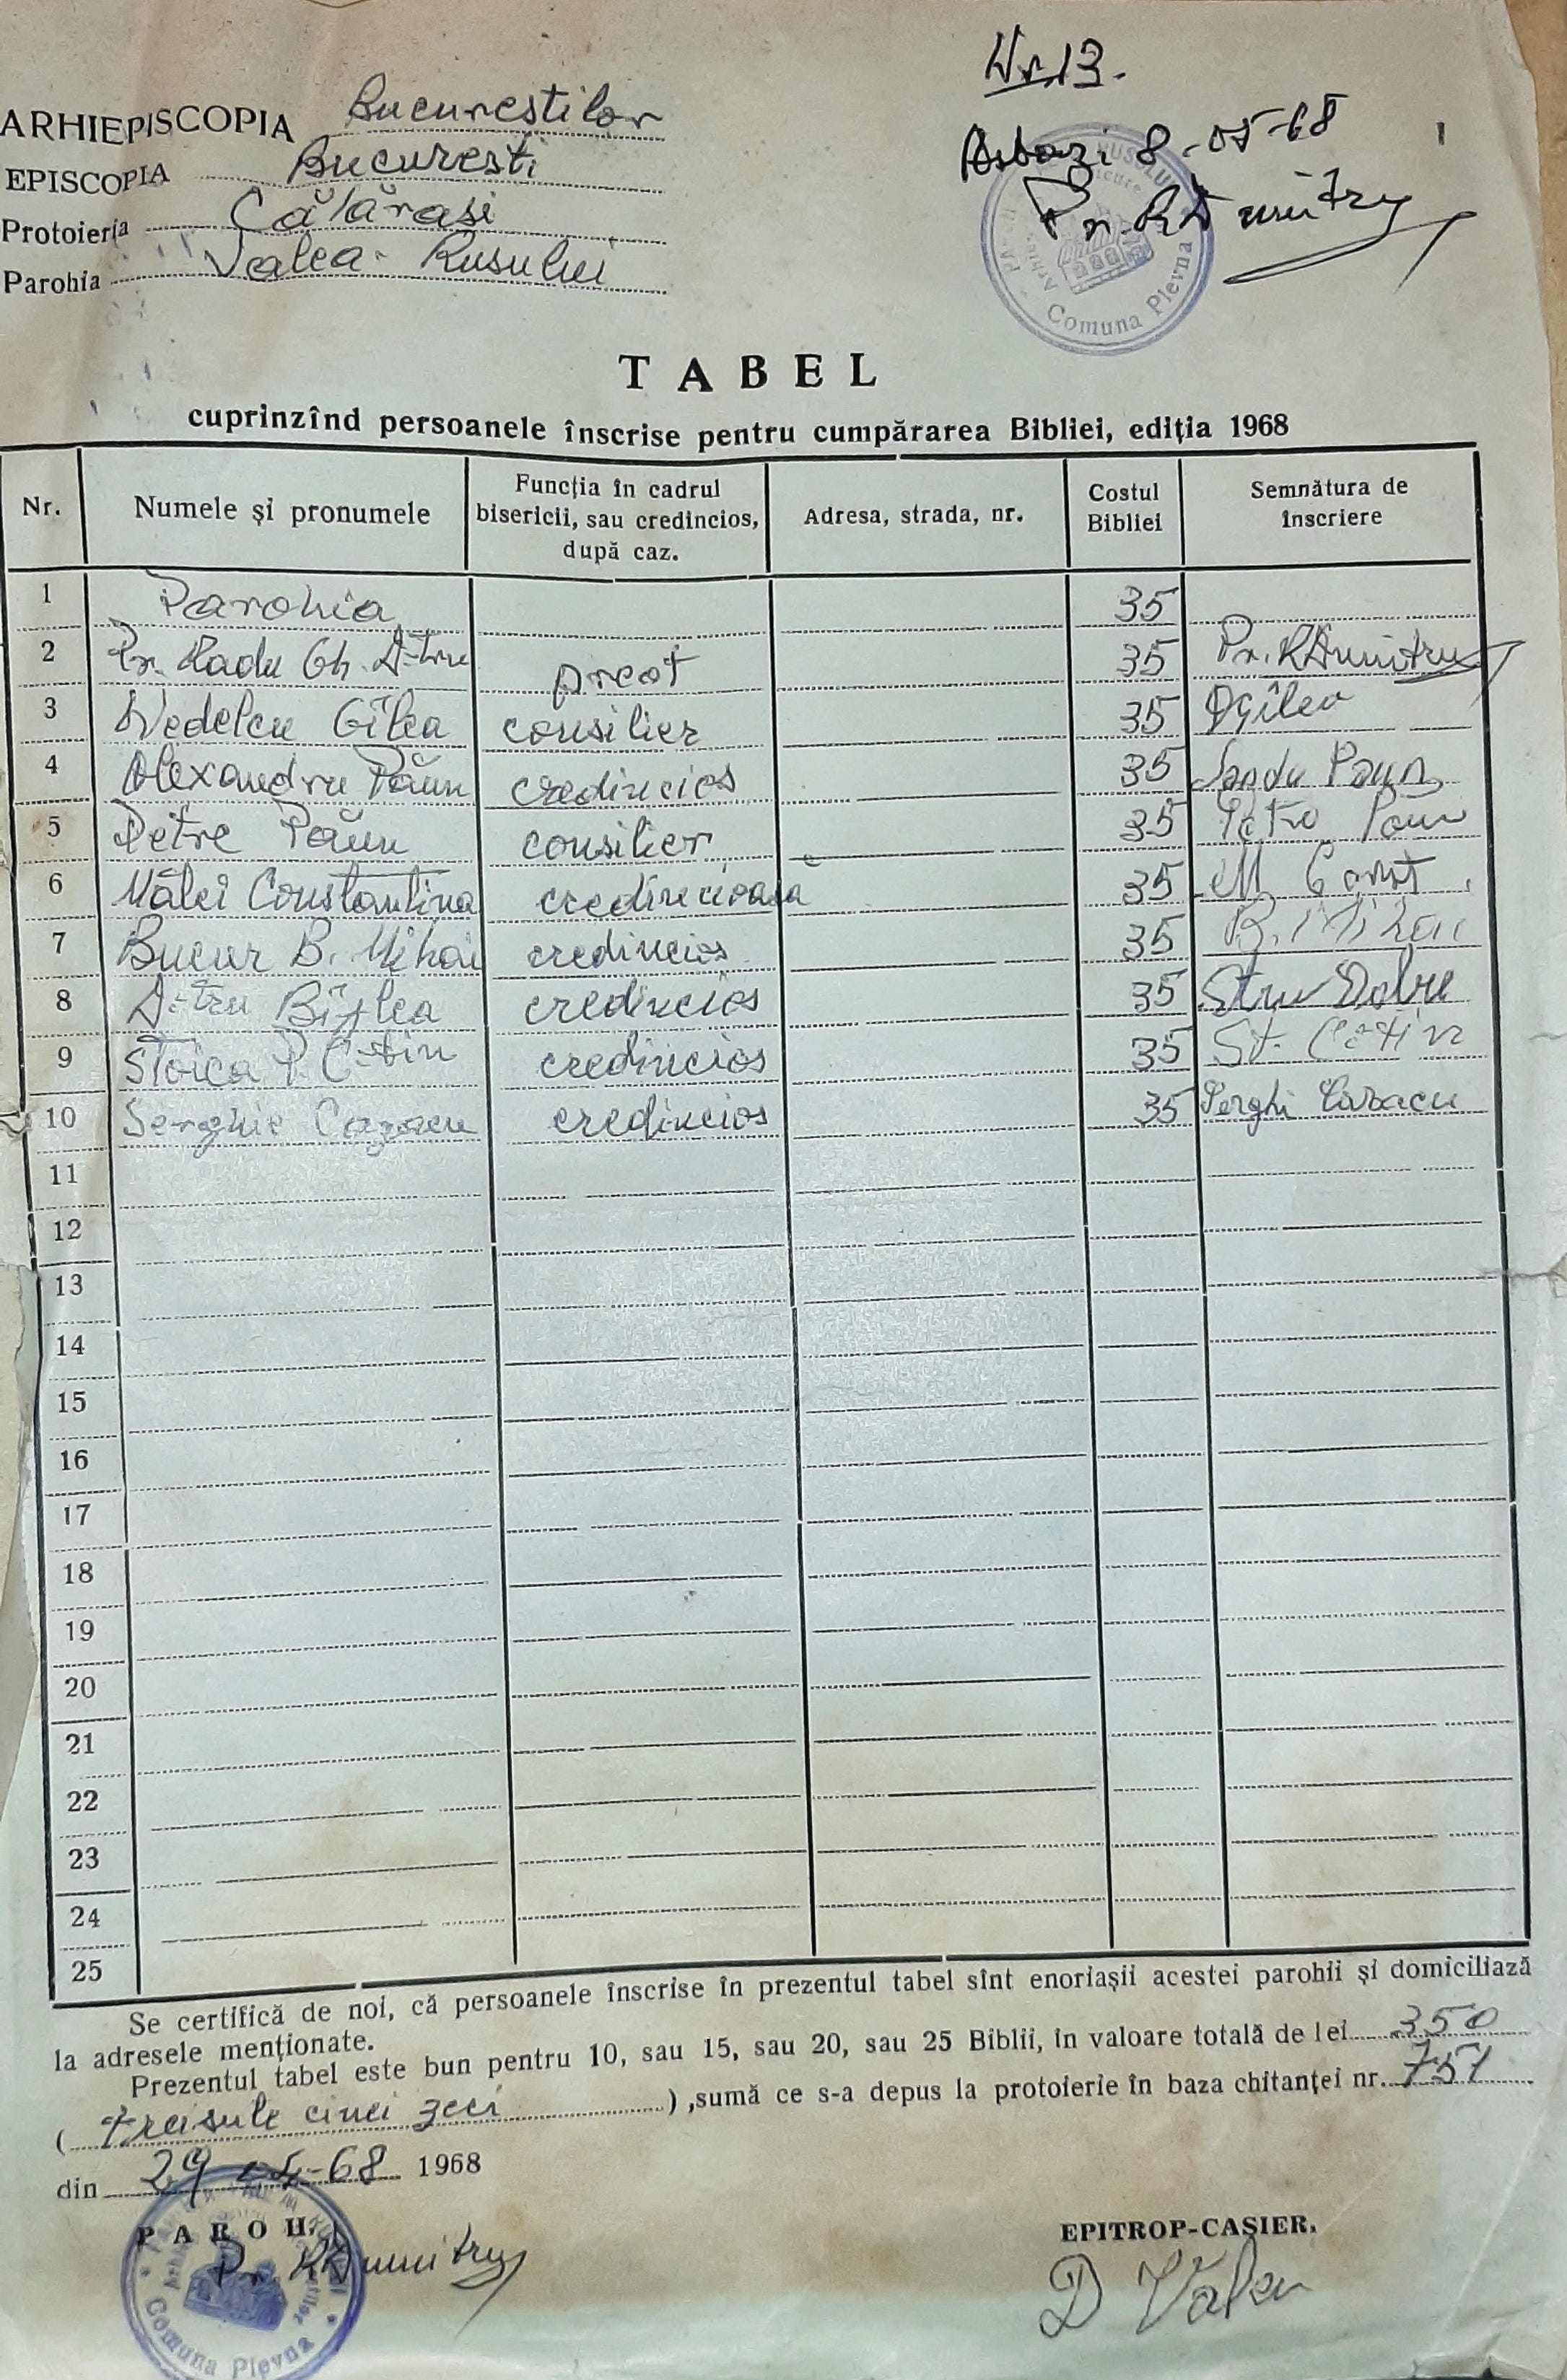 Nr. 13.
Astazi 8-05-68
Pr. RDumitru
Comuna Plevna
ARHIEPISCOPIA Bucurestilor
EPISCOPIA Bucuresti
Protoieria Călărași
Parohia Valea-Rusului
TABEL
cuprinzînd persoanele înscrise pentru cumpărarea Bibliei, ediția 1968
Nr. Numele și pronumele Funcția în cadrul bisericii, sau credincios, după caz. Adresa, strada, nr. Costul Bibliei Semnătura de înscriere
1 Parohia 35
2 Pr. Radu Gh. D-tru preot 35 Pr. RDumitru
3 Nedelcu Gîlea consilier 35 Gîlea
4 Alexandru Păun credincios 35 Sandu Paun
5 Petre Păun consilier 35 Petre Păun
6 Matei Constantina credincioasa 35 M
7 Bucur B. Mihai credincios 35 B. Mihai
8 D-tru credincios 35
9 Stoica P. C-tin credincios 35 St.
10 Serghie Cazacu credincios 35 Serghi Cazacu
11
12
13
14
15
16
17
18
19
20
21
22
23
24
25
Se certifică de noi, că persoanele înscrise în prezentul tabel sînt enoriașii acestei parohii și domiciliază
la adresele menționate.
Prezentul tabel este bun pentru 10, sau 15, sau 20, sau 25 Biblii, în valoare totală de lei 350
( treisute cinci zeci ) ,sumă ce s-a depus la protoierie în baza chitanței nr. 751
din 29 68 1968
PAROH,
Pr. RDumitru
Comuna Plevna
EPITROP-CASIER,
D